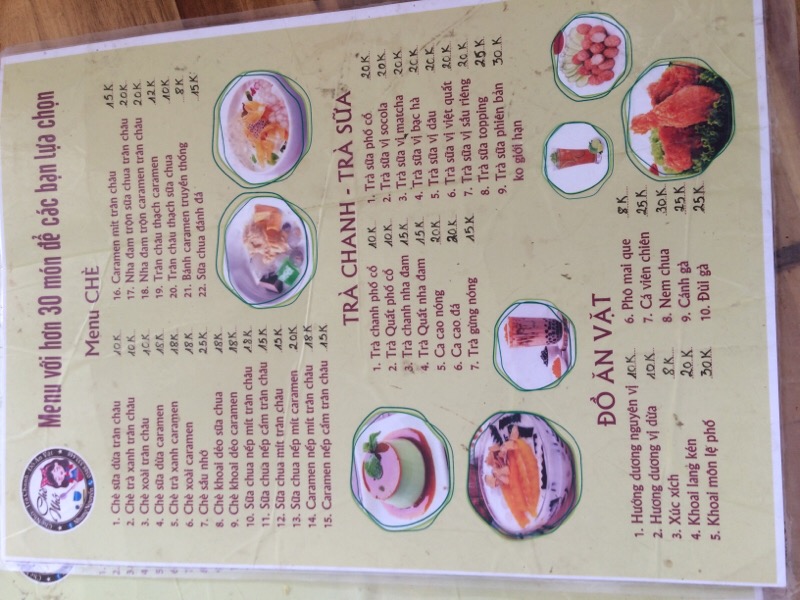 Chè Nhớ
Menu với hơn 30 món để các bạn lựa chọn
Menu CHÈ
1. Chè sữa dừa trân châu 10K
2. Chè trà xanh trân châu 10K
3. Chè xoài trân châu 10K
4. Chè sữa dừa caramen 18K
5. Chè trà xanh caramen 18K
6. Chè xoài caramen 18K
7. Chè sầu nhớ 25K
8. Chè khoai dẻo sữa chua 18K
9. Chè khoai dẻo caramen 18K
10. Sữa chua nếp mít trân châu 18K
11. Sữa chua nếp cẩm trân châu 15K
12. Sữa chua mít trân châu 15K
13. Sữa chua nếp mít caramen 20K
14. Caramen nếp mít trân châu 18K
15. Caramen nếp cẩm trân châu 15K
16. Caramen mít trân châu 15K
17. Nha đam trộn sữa chua trân châu 20K
18. Nha đam trộn caramen trân châu 20K
19. Trân châu thạch caramen 12K
20. Trân châu thạch sữa chua 10K
21. Bánh caramen truyền thống 8K
22. Sữa chua đánh đá 15K
TRÀ CHANH - TRÀ SỮA
1. Trà chanh phố cổ 10K
2. Trà Quất phố cổ 10K
3. Trà chanh nha đam 15K
4. Trà Quất nha đam 15K
5. Ca cao nóng 20K
6. Ca cao đá 20K
7. Trà gừng nóng 15K
1. Trà sữa phố cổ 20K
2. Trà sữa vị socola 20K
3. Trà sữa vị matcha 20K
4. Trà sữa vị bạc hà 20K
5. Trà sữa vị dâu 20K
6. Trà sữa vị việt quất 20K
7. Trà sữa vị sầu riêng 20K
8. Trà sữa topping 25K
9. Trà sữa phiên bản 30K
ko giới hạn
ĐỒ ĂN VẶT
1. Hướng dương nguyên vị 10K
2. Hương dương vị dừa 10K
3. Xúc xích 8K
4. Khoai lang kén 20K
5. Khoai môn lệ phố 30K
6. Phô mai que 8K
7. Cá viên chiên 25K
8. Nem chua 30K
9. Cánh gà 25K
10. Đùi gà 25K